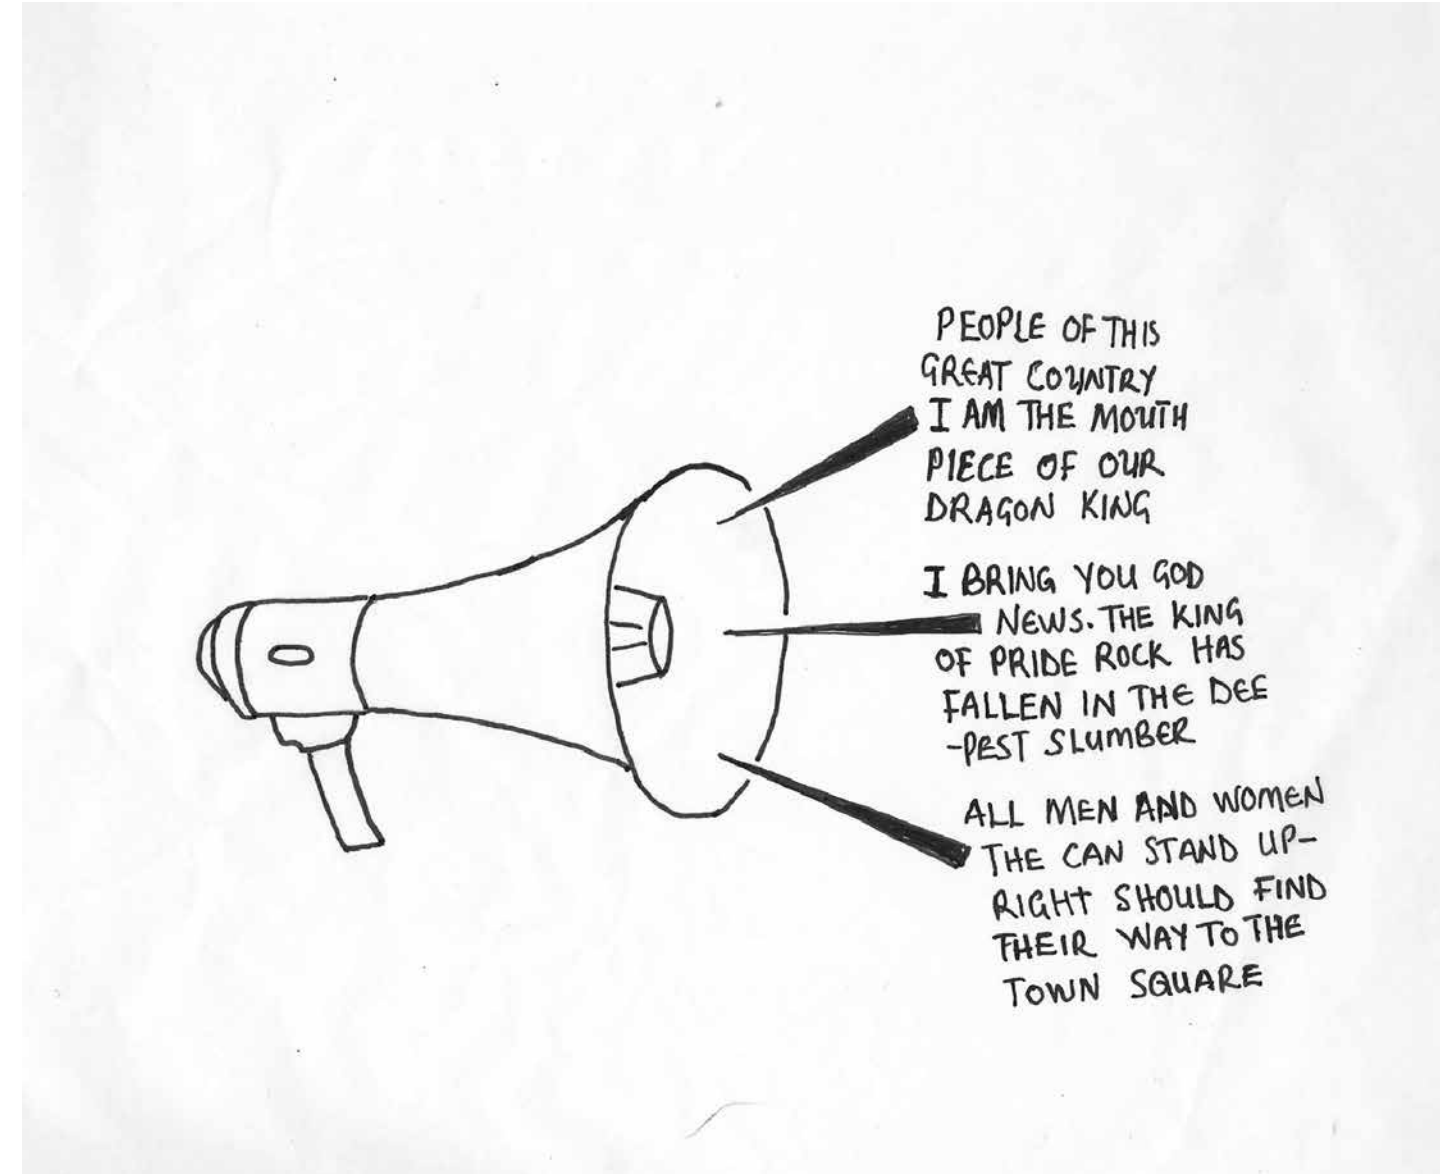 PEOPLE OF THIS
GREAT COUNTRY
I AM THE MOUTH
PIECE OF OUR
DRAGON KING
I BRING YOU GOD
NEWS. THE KING
OF PRIDE ROCK HAS
FALLEN IN THE DEE
-PEST SLUMBER
ALL MEN AND WOMEN
THE CAN STAND UP-
RIGHT SHOULD FIND
THEIR WAY TO THE
TOWN SQUARE